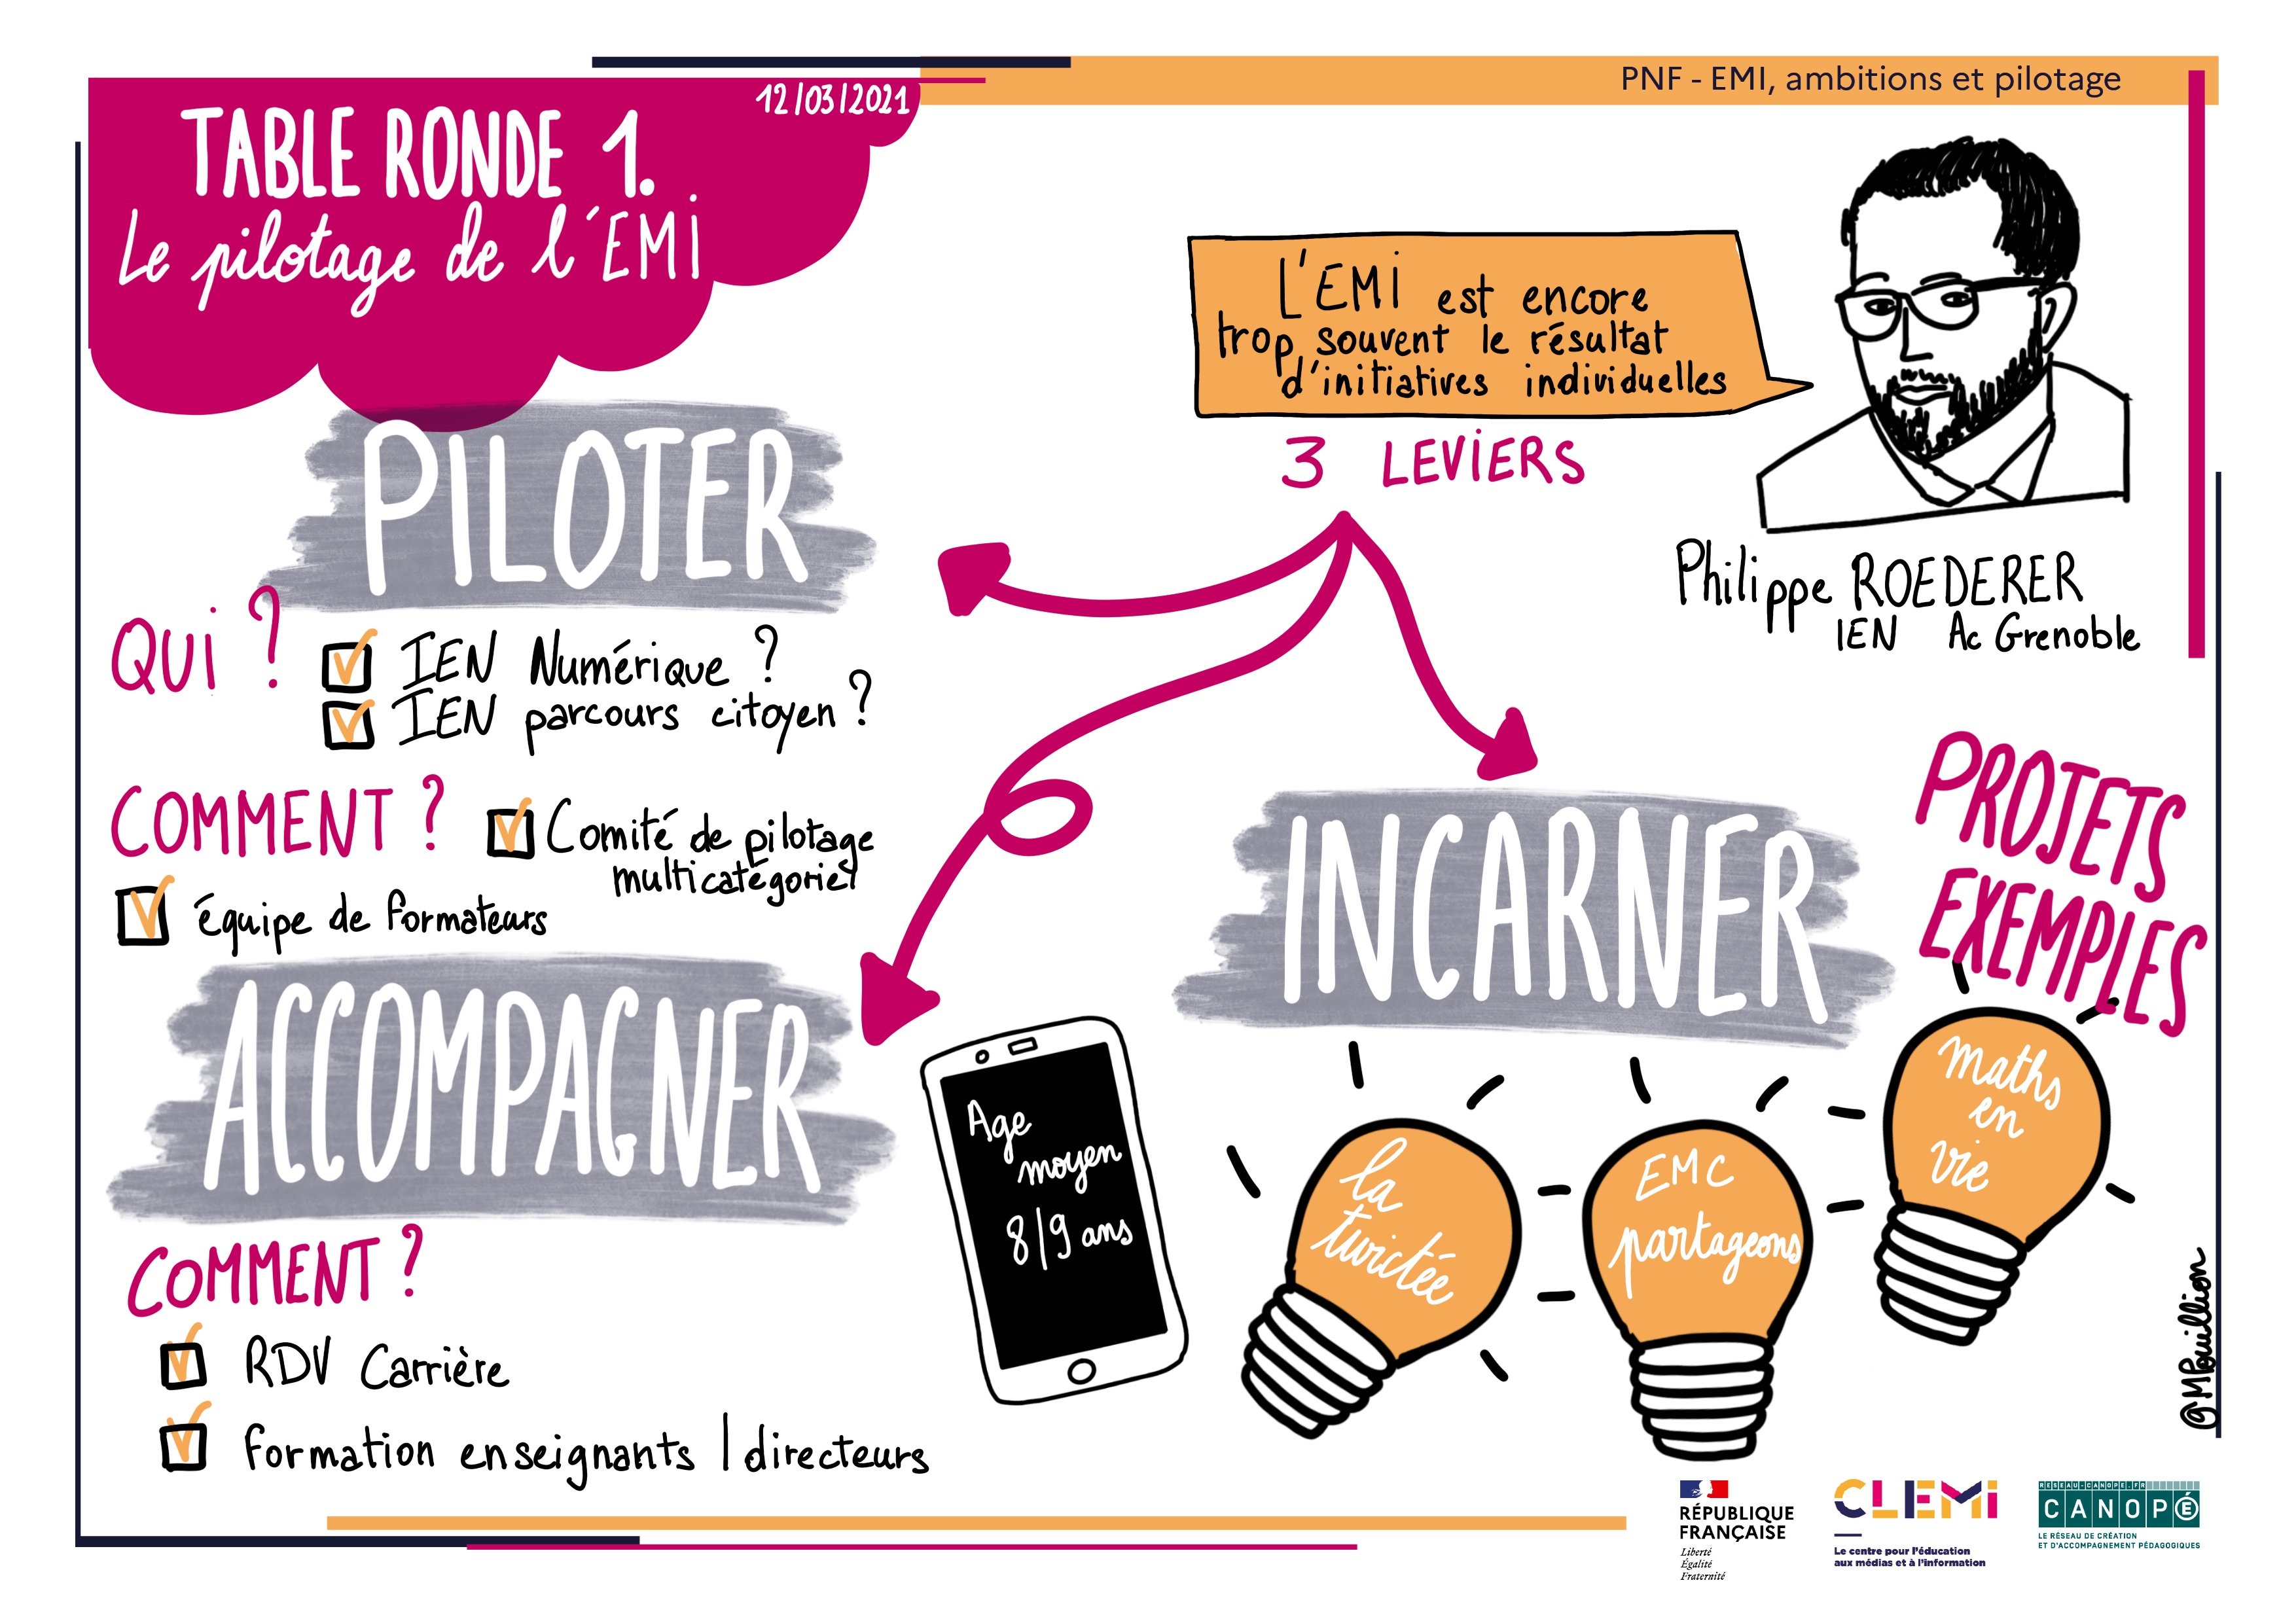 PNF - EMI, ambitions et pilotage
12/03/2021
TABLE RONDE 1.
Le pilotage de l'EMI
L'EMI est encore
trop souvent le résultat
d'initiatives individuelles
3 LEVIERS
Philippe ROEDERER
IEN Ac Grenoble
PILOTER
QUI ?
IEN Numérique ?
IEN parcours citoyen ?
COMMENT ?
Comité de pilotage
multicatégoriel
équipe de formateurs
ACCOMPAGNER
COMMENT ?
RDV Carrière
formation enseignants | directeurs
Age
moyen
8/9 ans
INCARNER
PROJETS
EXEMPLES
la
twictée
EMC
partageons
maths
en
vie
@MPouillion
RÉPUBLIQUE
FRANÇAISE
Liberté
Égalité
Fraternité
CLEMI
Le centre pour l'éducation
aux médias et à l'information
RESEAU-CANOPE.FR
CANOPÉ
LE RÉSEAU DE CRÉATION
ET D'ACCOMPAGNEMENT PÉDAGOGIQUES